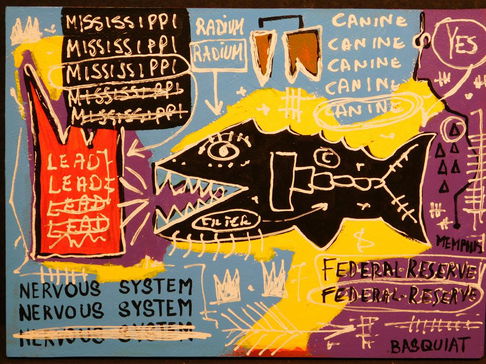 MISSISSIPPI
MISSISSIPPI
MISSISSIPPI
MISSISSIPPI
MISSISSIPPI
RADIUM
RADIUM
CANINE
CANINE
CANINE
CANINE
CANINE
YES
LEAD
LEAD
LEAD
LEAD
C
FILTER
$
MEMPHIS
FEDERAL·RESERVE
FEDERAL·RESERVE
NERVOUS SYSTEM
NERVOUS SYSTEM
NERVOUS SYSTEM
BASQUIAT